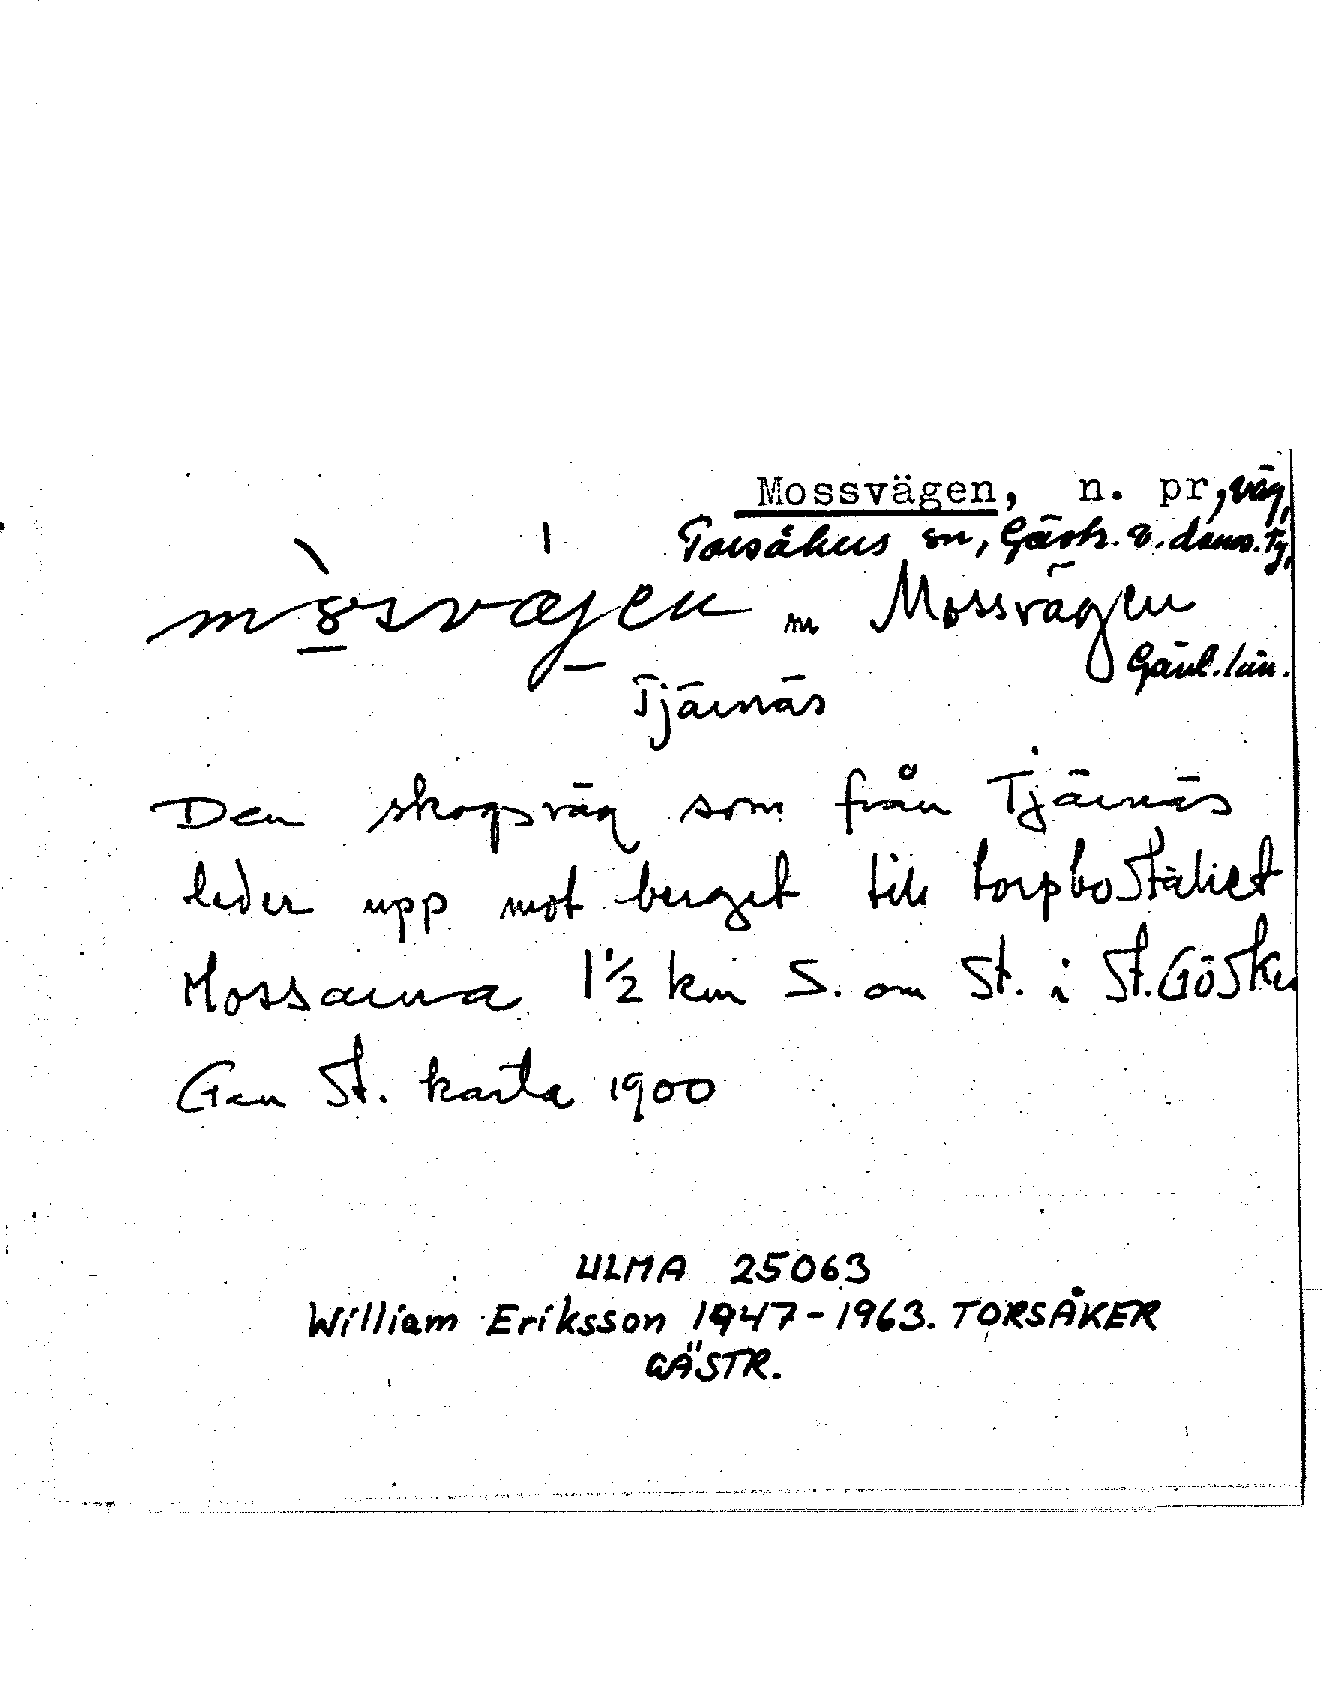 Mossvägen, n. pr, väg,
Torsåkers sn, Gästr. ö. doms.
m Mossvägen
Gävl. län.
Tjärnäs
Den skogsväg som från Tjärnäs
leder upp mot berget till torpbostället
Mossarna 1½ km S. om St. i St.
Gen St. karta 1900
ULMA 25063
William Eriksson 1947-1963. TORSÅKER
GÄSTR.